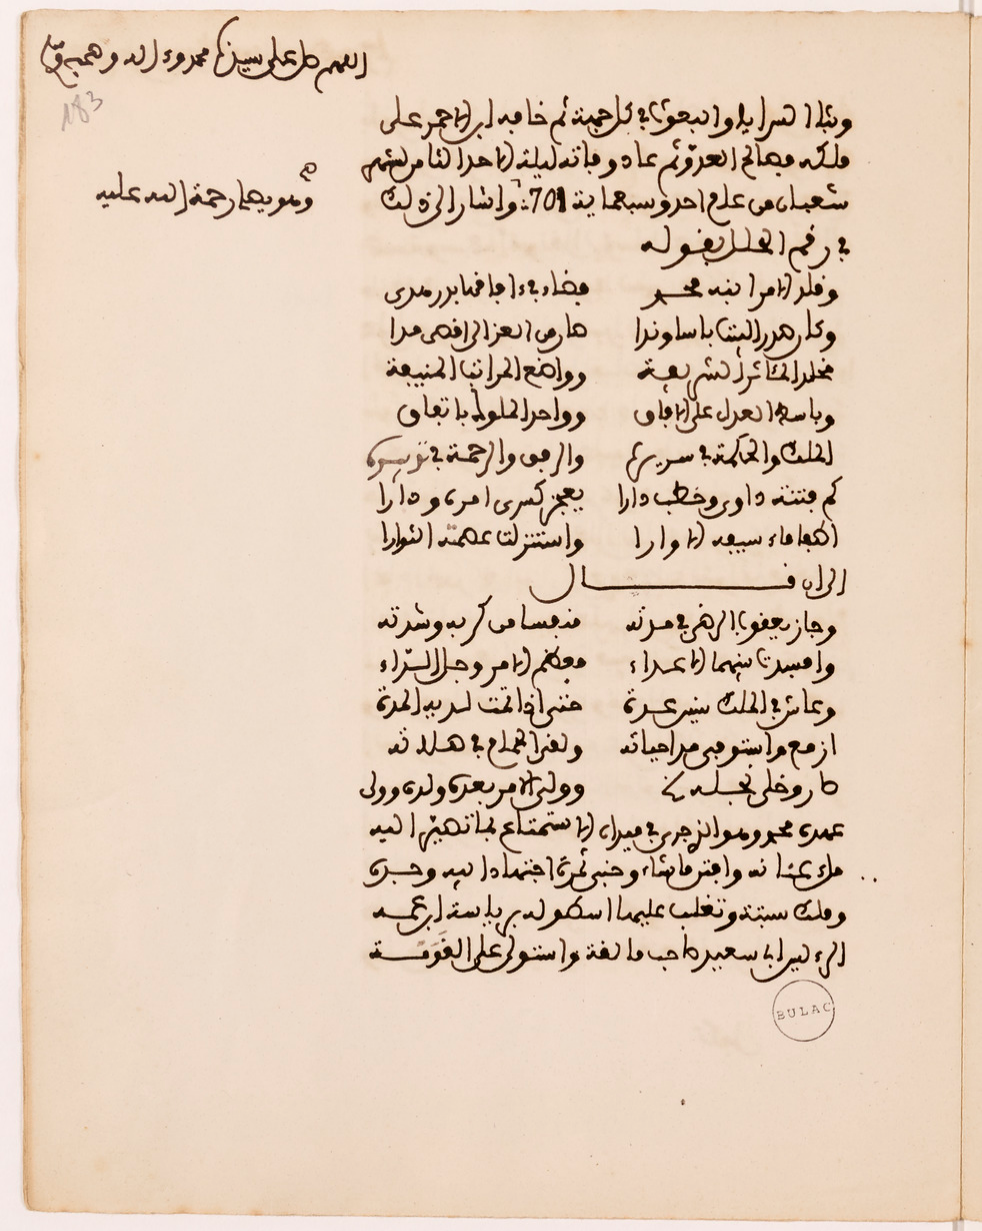 اللهم صل على سيدنا محمد وءاله وصحبه
183
وبث السرايا والبعوث في كل جهة ثم خافه ابن الاحمر على
ملكه فصالح العدو ثم عاد وفاته ليلة الاحد الثامن شهر
شعبان من عام احد وسبعماية 701 واشار الى ذلك
وهو بها رحمة الله عليه
في رقم الحلل بقوله
وقلد الامر ابنه محمد فضاء في افاقها بدر هدى
وكان هدر الليث باسا وندا حاز من العز الى اقصى مدا
مخلد المئاثر الشريعة وواضع المراتب المنيعة
وباسط العدل على الافاق وواحد الملوك باتفاق
الملك والحكمة في سريره والرفق والرحمة في
كم فتنة داوى وخطب دارا يعجز كسرى امره ودارا
اطفا ماء سيفه الاوارا واستنزلت عصمته الثوارا
الى ان قال
وجاز يعقوب الرضى في مدته منفسا من كربه وشدته
وافسدت بينهما الاعداء فعظم الامر وجل الداء
وعاش في الملك سنين عدة حتى اذا تمت لديه المدة
ازمع واستوفى مدا حياته ولقي الحمام في صلاته
وخلى نجله وولى الامر بعده ولده وولى
عهده محمد وهو الذي جرى في ميدان الاستمتاع لما تهيئ اليه
ملك عنانه وافتر ما شاء وجنى ثمرة اجتهاد ابيه وجده
وملك سبتة وتغلب عليها اسطوله برياسة ابن عمه
الرءيس ابي سعيد صاحب مالقة واستولى على
BULAC